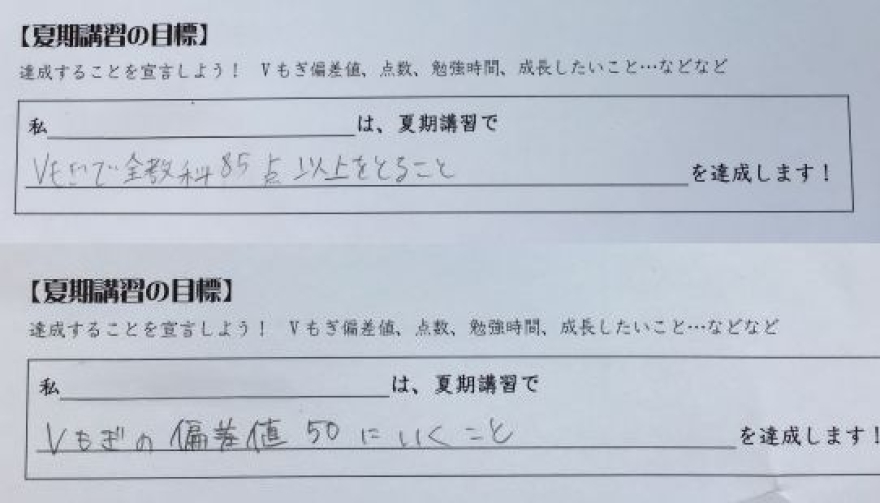 【夏期講習の目標】
達成することを宣言しよう! Vもぎ偏差値、点数、勉強時間、成長したいこと…などなど
私 は、夏期講習で
Vもぎで全教科85点以上をとること を達成します!
【夏期講習の目標】
達成することを宣言しよう! Vもぎ偏差値、点数、勉強時間、成長したいこと…などなど
私 は、夏期講習で
Vもぎの偏差値50にいくこと を達成します!